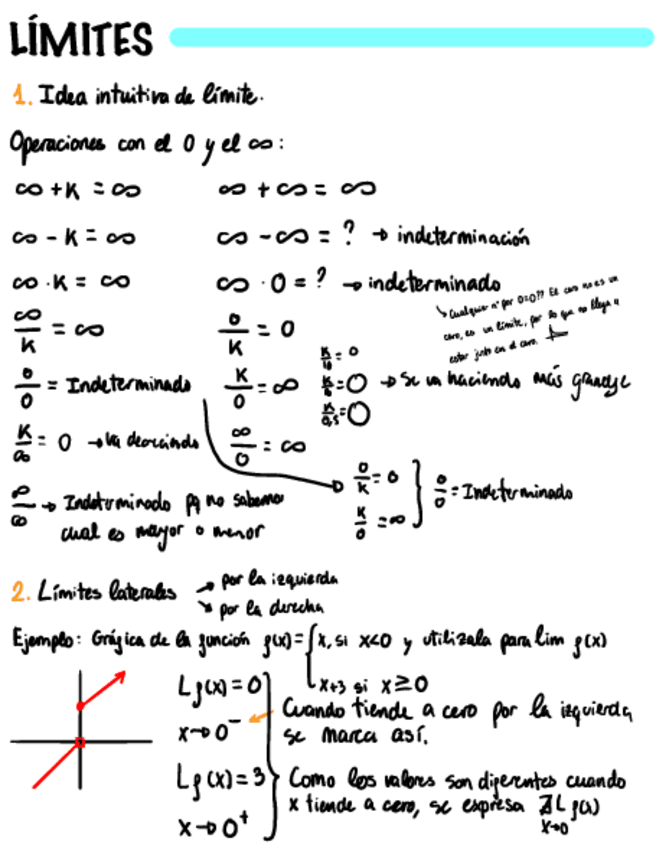 LÍMITES
1. Idea intuitiva de límite.
Operaciones con el 0 y el ∞:
∞ + K = ∞ ∞ + ∞ = ∞
∞ - K = ∞ ∞ - ∞ = ? → indeterminación
∞ · K = ∞ ∞ · 0 = ? → indeterminado
↘ Cualquier nº por 0=0?? Ese cero no es un
cero, es un límite, por lo que no llega a
estar justo en el cero.
∞/K = ∞ 0/K = 0
0/0 = Indeterminado K/0 = ∞
K/10 = 0
K/ = 0 → Se va haciendo más grande
K/0,5 = 0
K/∞ = 0 → va decreciendo ∞/0 = ∞
0/K = 0
K/0 = ∞ } 0/0 = Indeterminado
∞/∞ → Indeterminado pq no sabemos
cual es mayor o menor
2. Límites laterales → por la izquierda
↘ por la derecha
Ejemplo: Gráfica de la función f(x) = { x, si x<0 y utilízala para lim f(x)
x+3 si x≥0
L f(x) = 0
x→0⁻
Cuando tiende a cero por la izquierda
se marca así.
L f(x) = 3
x→0⁺
Como los valores son diferentes cuando
x tiende a cero, se expresa ∄ L f(x)
x→0